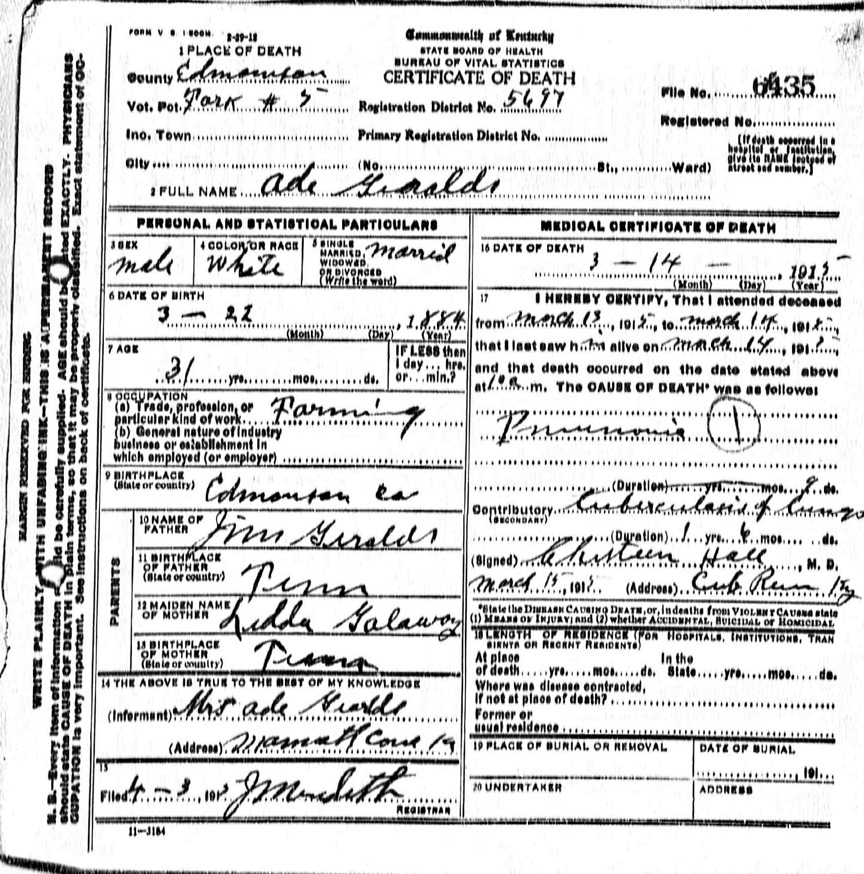 FORM V. S. 1 500M. 2-29-12
Commonwealth of Kentucky
STATE BOARD OF HEALTH
BUREAU OF VITAL STATISTICS
CERTIFICATE OF DEATH
1 PLACE OF DEATH
County Edmonson
Vot. Pct. Fork # 5
Registration District No. 5697
File No. 6435
Registered No.
Inc. Town
Primary Registration District No.
City (No. St., Ward)
(If death occurred in a
hospital or institution,
give its NAME instead of
street and number.)
2 FULL NAME Ade Geralds
PERSONAL AND STATISTICAL PARTICULARS
3 SEX male
4 COLOR OR RACE White
5 SINGLE
MARRIED,
WIDOWED
OR DIVORCED
(Write the word)
Married
6 DATE OF BIRTH
3 - 22, 1884
(Month) (Day) (Year)
7 AGE
31 yrs. mos. ds.
IF LESS then
1 day... hrs.
or... min.?
8 OCCUPATION
(a) Trade, profession, or
particular kind of work Farming
(b) General nature of industry
business or establishment in
which employed (or employer)
9 BIRTHPLACE
(State or country) Edmonson co
PARENTS
10 NAME OF
FATHER Jim Geralds
11 BIRTHPLACE
OF FATHER
(State or country) Tenn
12 MAIDEN NAME
OF MOTHER Ledda Galaway
13 BIRTHPLACE
OF MOTHER
(State or country) Tenn
14 THE ABOVE IS TRUE TO THE BEST OF MY KNOWLEDGE
(Informant) Mrs Ade Gearlds
(Address) Mamath Cave Ky
15
Filed 4 - 3, 1915 J Meredith
REGISTRAR
11-3184
MEDICAL CERTIFICATE OF DEATH
16 DATE OF DEATH
3 - 14 - , 1915
(Month) (Day) (Year)
17 I HEREBY CERTIFY, That I attended deceased
from march 13, 1915, to march 14, 1915,
that I last saw him alive on march 14, 1915,
and that death occurred on the date stated above
at m. The CAUSE OF DEATH* was as follows:
Pneumonia 1
(Duration) yrs. mos. 9 ds.
Contributory Tuberculosis of lungs
(SECONDARY)
(Duration) 1 yrs 6 mos. ds.
(Signed) Hall, M. D.
march 15, 1915 (Address) Cub Run Ky
*State the DISEASE CAUSING DEATH, or, in deaths from VIOLENT CAUSES state
(1) MEANS OF INJURY; and (2) whether ACCIDENTAL, SUICIDAL or HOMICIDAL
18 LENGTH OF RESIDENCE (FOR HOSPITALS, INSTITUTIONS, TRAN
SIENTS OR RECENT RESIDENTS)
At place In the
of death yrs. mos. ds. State yrs. mos. ds.
Where was disease contracted,
if not at place of death?
Former or
usual residence
19 PLACE OF BURIAL OR REMOVAL
DATE OF BURIAL
, 191
20 UNDERTAKER
ADDRESS
MARGIN RESERVED FOR BINDING
WRITE PLAINLY, WITH UNFADING INK—THIS IS A PERMANENT RECORD
N. B.—Every item of information should be carefully supplied. AGE should be stated EXACTLY. PHYSICIANS
should state CAUSE OF DEATH in plain terms, so that it may be properly classified. Exact statement of OC-
CUPATION is very important. See instructions on back of certificate.